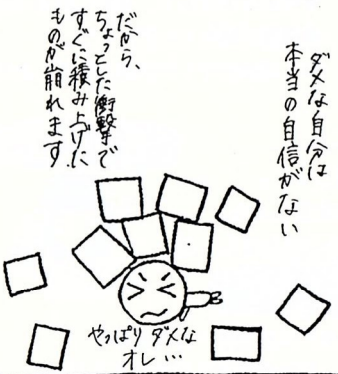 ダメな自分は
本当の自信がない
だから、
ちょっとした衝撃で
すぐに積み上げた
ものが崩れます
やっぱりダメな
オレ…